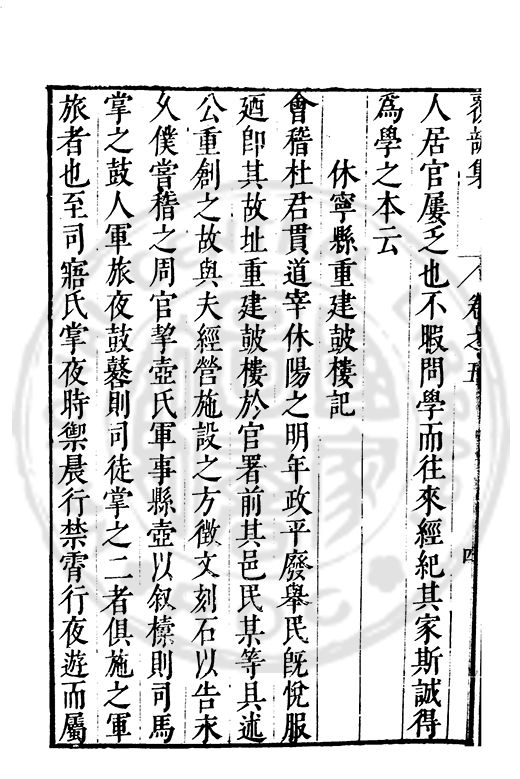 復齋集 卷之五 四
人居官屢乏也不暇問學而往來經紀其家斯誠得
為學之本云
休寧縣重建皷樓記
會稽杜君貫道宰休陽之明年政平廢舉民旣悅服
廼卽其故址重建皷樓於官署前其邑民某等具述
公重創之故與夫經營施設之方徵文刻石以告永
久僕嘗稽之周官挈壺氏軍事縣壺以敘𣝔則司馬
掌之鼓人軍旅夜鼓鼜則司徒掌之二者俱施之軍
旅者也至司寤氏掌夜時禦晨行禁霄行夜遊而屬